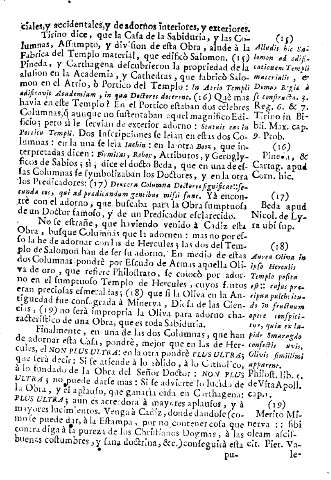 ciales, y accidentales, y de adornos interiores, y exteriores.
Tirino dice, que la Casa de la Sabiduria, y las Co-
lumnas, Assumpto, y division de esta Obra, alude à la
Fabrica del Templo material, que edificò Salomon. (15)
Pineda, y Carthagena descubrieron la propriedad de la
alusion en la Academia, y Cathedras, que fabricò Salo-
mon en el Atrio, ò Portico del Templo: In Atrio Templi
ædificavit Academiam, in qua Doctores docerent. (16) Què mas
havia en este Templo? En el Portico estaban dos celebres
Columnas, aunque no sustentaban aquel magnifico Edi-
ficio; pero sì le servian de exterior adorno: Statuit eas in
Porticu Templi. Dos Inscripciones se leian en estas dos Co-
lumnas: en la una se leia Iachin: en la otra Booz, que in-
terpretadas dicen: Firmitas, Robor, Atributos, y Geroglyf-
ficos de Sabios; sì, dice el docto Beda, que en una de es-
tas Columnas se symbolizaban los Doctores, y en la otra
los Predicadores: (17) Dextera Columna Doctores significat:
qui ad prædicandum gentibus missi sunt. Yà encon-
trè con el adorno, que buscaba para la Obra sumptuosa
de un Doctor famoso, y de un Predicador esclarecido.
No se estrañe, que haviendo venido à Cadiz esta
Obra, busque Columnas que la adornen: mas no por es-
so la he de adornar con las de Hercules; las dos del Tem-
plo de Salomon han de ser su adorno. En medio de estas
dos Columnas pondrè por Escudo de Armas aquella Oli-
va de oro, que refiere Philostrato, se colocò por ador-
no en el sumptuoso Templo de Hercules, cuyos frutos
eran preciosas esmeraldas; (18) que si la Oliva en la An-
tiguedad fue consagrada à Minerva, Diosa de las Cien-
cias, (19) no serà impropria la Oliva para adorno cha-
racteristico de una Obra, que es toda Sabiduria.
Finalmente, en una de las dos Columnas, que han
de adornar esta Casa, pondrè, mejor que en las de Her-
cules, el NON PLUS ULTRA: en la otra pondrè PLUS ULTRA;
que serà decir: Si se atiende à lo solido, à lo Catholico,
à lo fundado de la Obra del Señor Doctor: NON PLUS
ULTRA; no puede darse mas: Si se advierte lo lucido de
la Obra, y el aplauso, que ganaria en Carthagena:
PLUS ULTRA; aun es acreedora à mayores aplausos, y à
mayores lucimientos. Venga à Cadiz, donde dandose (co-
mo se puede dar, à la Estampa, por no contener cosa que
contradiga à la pureza de los Christianos Dogmas, à las
buenas costumbres, y sana doctrina, &c.) conseguirà esta
pu-
(15)
Alludit hic Sa-
lomon ad ædifi-
cationem Templi
materialis, &
Domus Regiæ à
se constructæ. 3.
Reg. 6. & 7.
Tirino in Bi-
bli. Max. cap.
9. Prob.
(16)
Pineda, &
Cartag. apud
Corn. hic.
(17)
Beda apud
Nicol. de Ly-
ra ubi sup.
(18)
Aurea Oliva in
isto Herculis
Templo posita
opere
ex la-
pide Smaragdo
Olivis simillimi
apparent.
Philost. lib. 5.
de Vita Apoll.
cap. 1.
(19)
Merito Mi-
nerva
oleam
cit.
le-